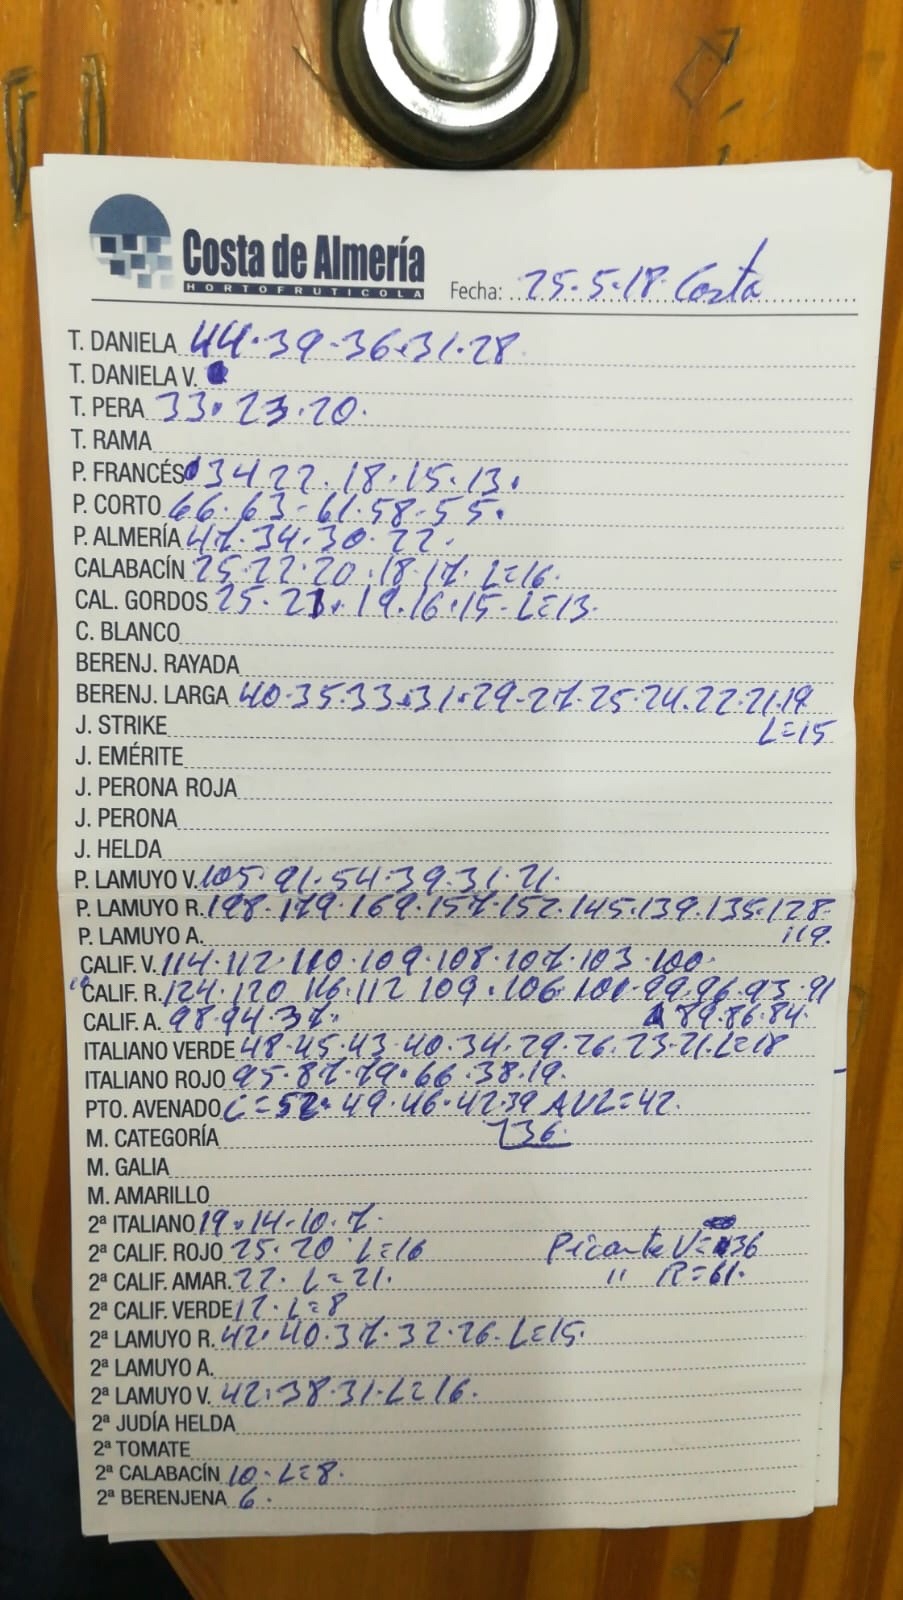 Costa de Almería
HORTOFRUTICOLA
Fecha: 25.5.18 Costa
T. DANIELA 44.39.36.31.28
T. DANIELA V.
T. PERA 33.23.20.
T. RAMA
P. FRANCÉS 34 22.18.15.13.
P. CORTO 66.63-61.58-55.
P. ALMERÍA 47.34.30.22.
CALABACÍN 25.22.20.18.17. L=16.
CAL. GORDOS 25.21.19.16.15- L=13.
C. BLANCO
BERENJ. RAYADA
BERENJ. LARGA 40.35.33.31.29-27.25.24.22.21.19
J. STRIKE L=15
J. EMÉRITE
J. PERONA ROJA
J. PERONA
J. HELDA
P. LAMUYO V. 105.91.54.39.31.21.
P. LAMUYO R. 198.179.169.157.152.145.139.135.128-
P. LAMUYO A. 119.
CALIF. V. 114.112.110.109.108.107.103.100.
CALIF. R. 124.120 116.112 109.106.100.99.96.93.91
CALIF. A. 98.94.37. 89.86.84.
ITALIANO VERDE 48.45.43.40.34.29.26.23.21.L=18
ITALIANO ROJO 95.87.79.66.38.19.
PTO. AVENADO C=52.49.46.42.39 AVL=42.
M. CATEGORÍA 36.
M. GALIA
M. AMARILLO
2ª ITALIANO 19.14.10.7.
2ª CALIF. ROJO 25.20 L=16 Picante V=36
2ª CALIF. AMAR. 22. L=21. " R=61.
2ª CALIF. VERDE 12. L=8
2ª LAMUYO R. 42.40.37.32.26. L=15.
2ª LAMUYO A.
2ª LAMUYO V. 42.38.31.L=16.
2ª JUDÍA HELDA
2ª TOMATE
2ª CALABACÍN 10. L=8.
2ª BERENJENA 6.